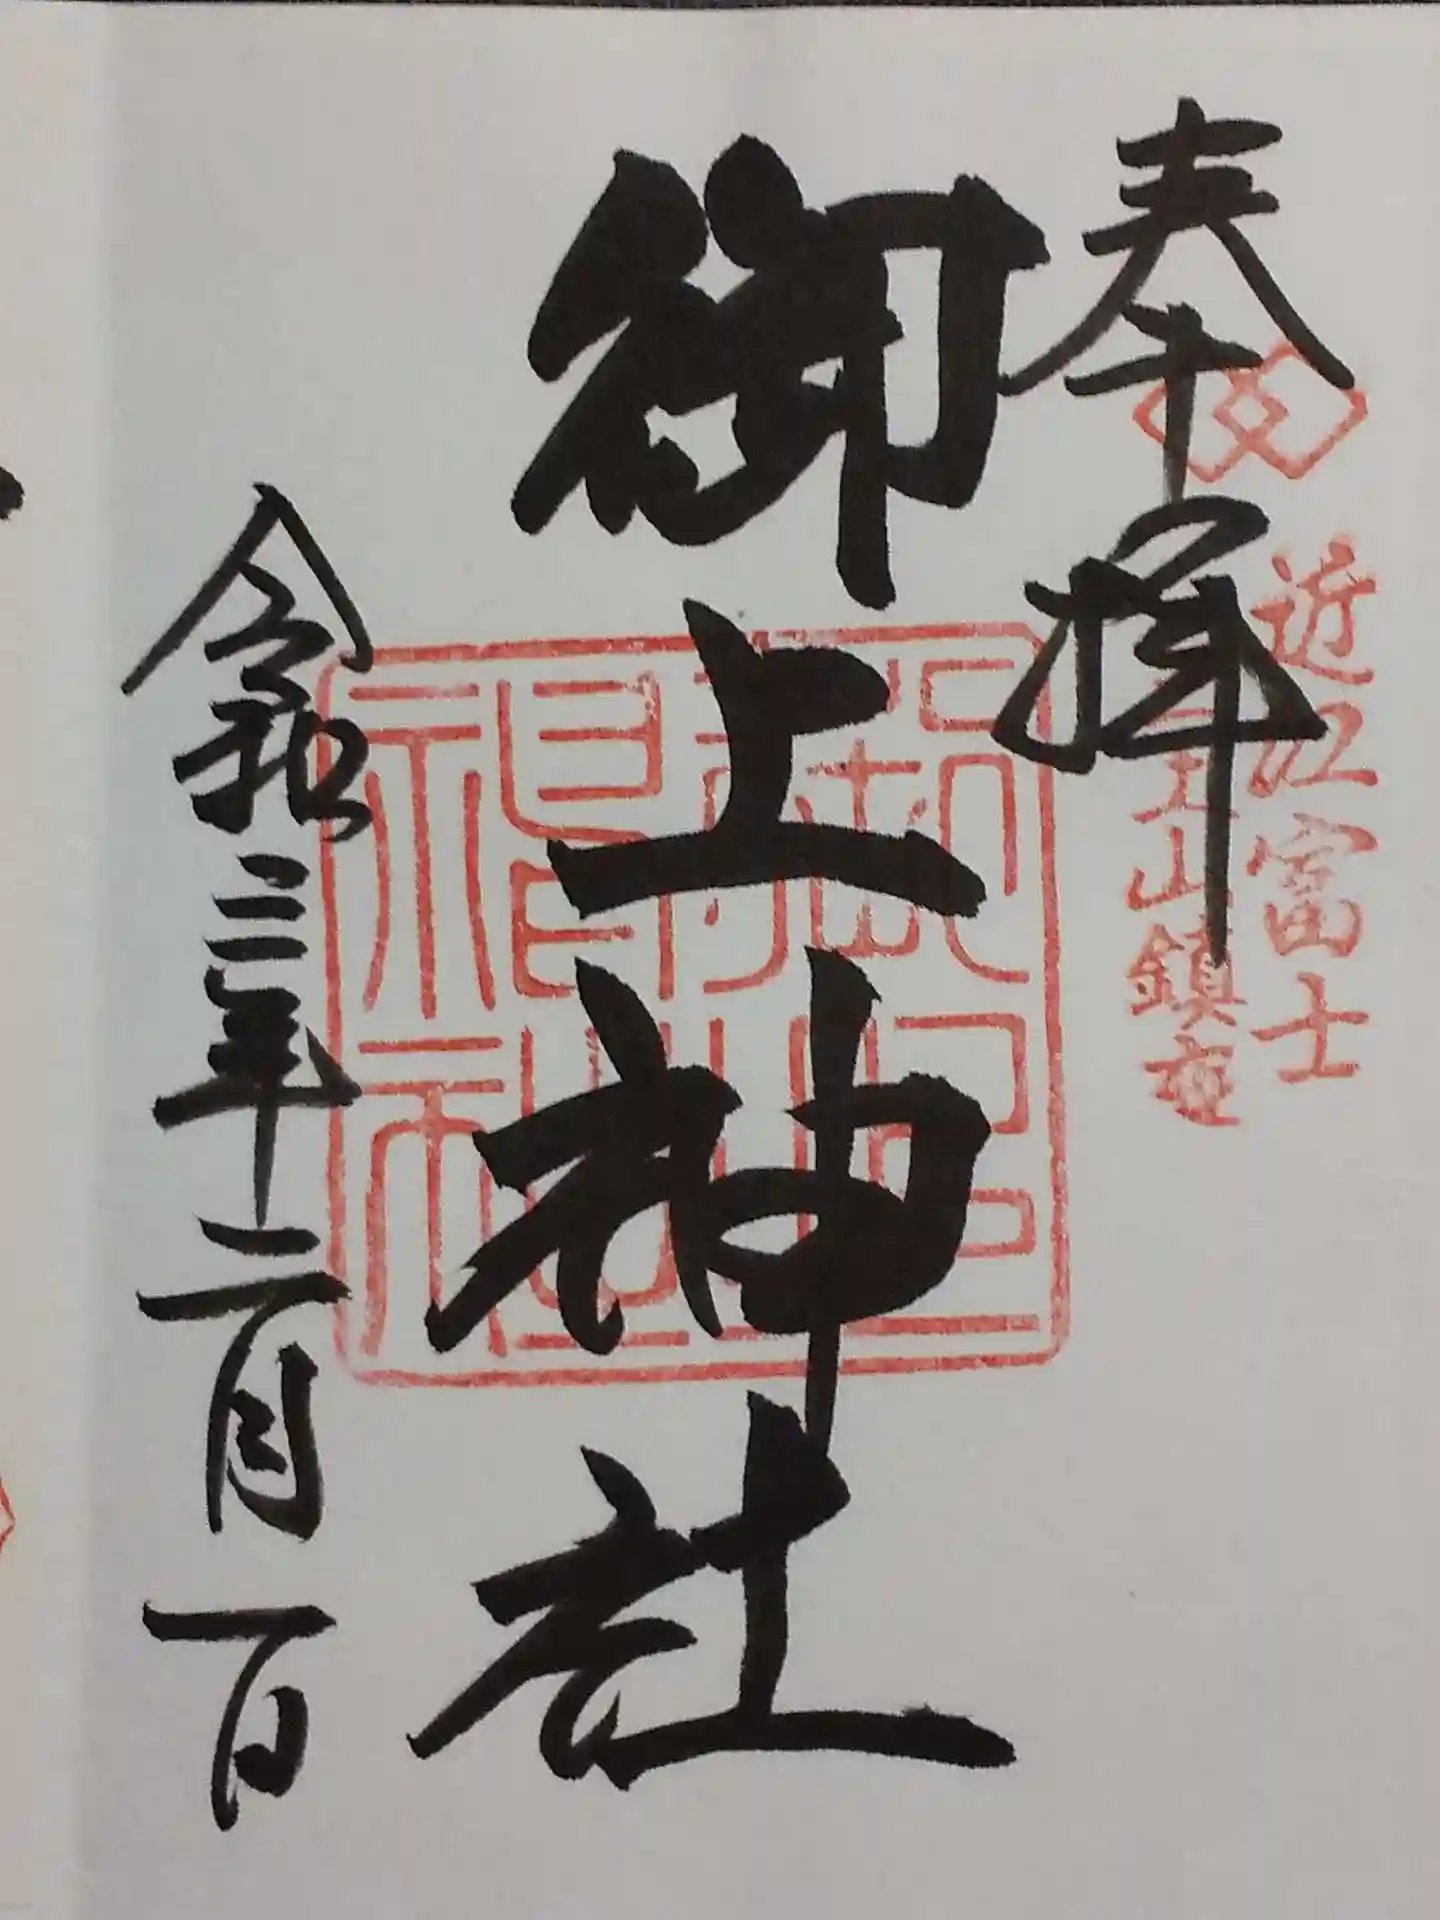 奉拝
近江富士
三上山鎮座
御上神社
令和三年二月一日